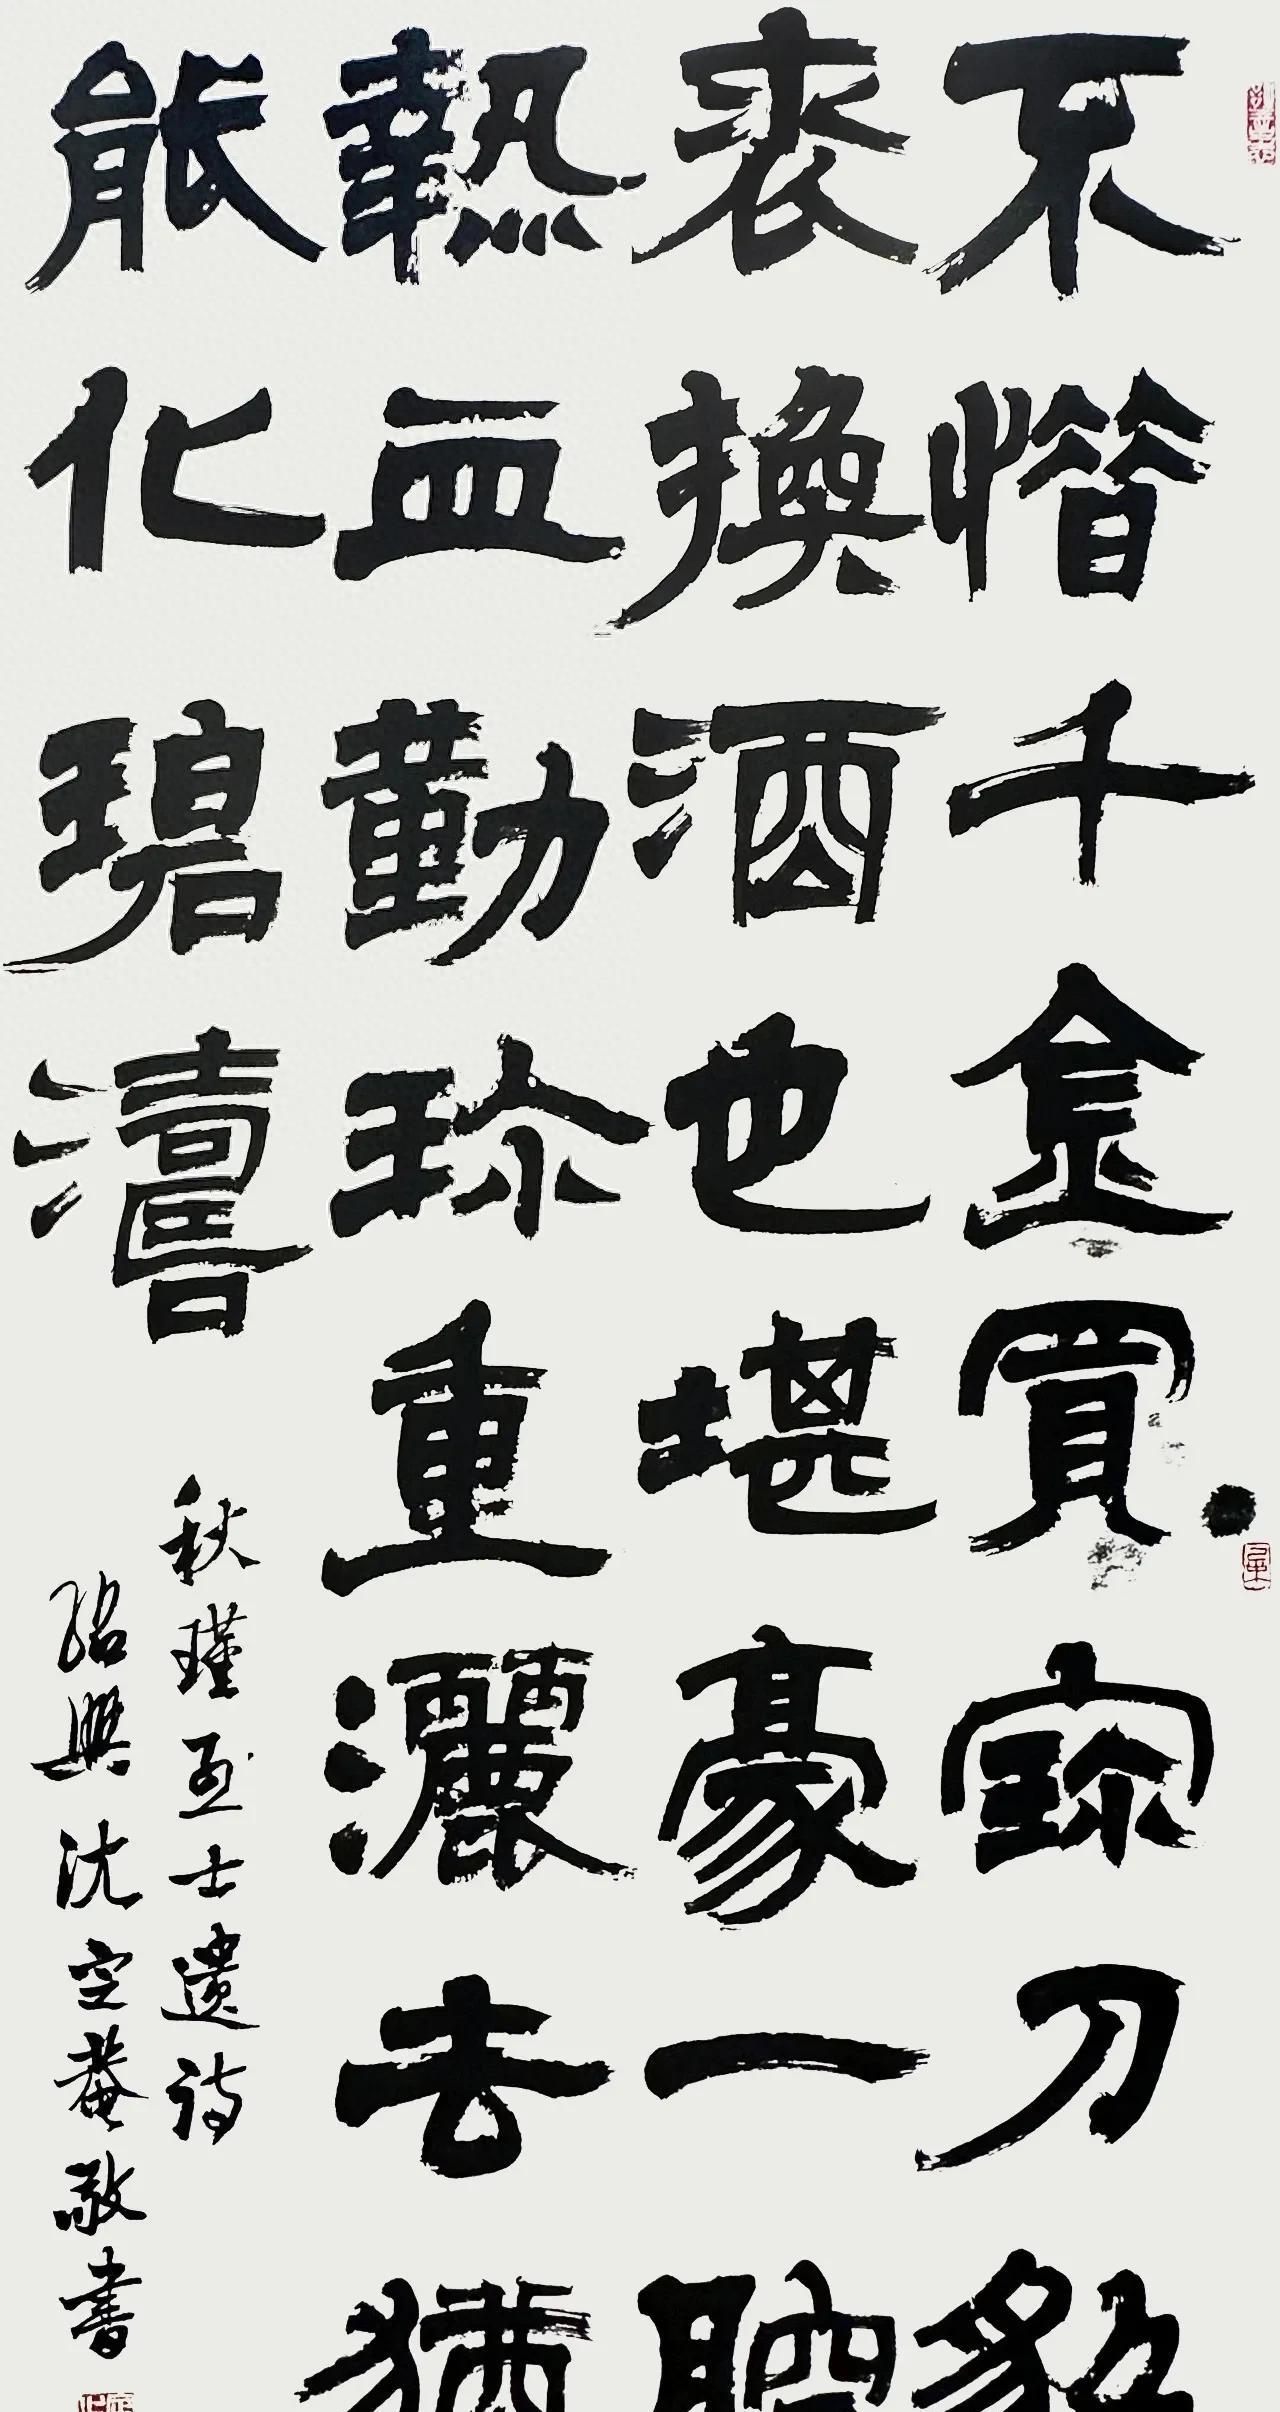 不惜千金買寶刀貂
裘換酒也堪豪一腔
熱血勤珍重灑去猶
能化碧濤
秋瑾烈士遺詩
紹興沈定菴敬書